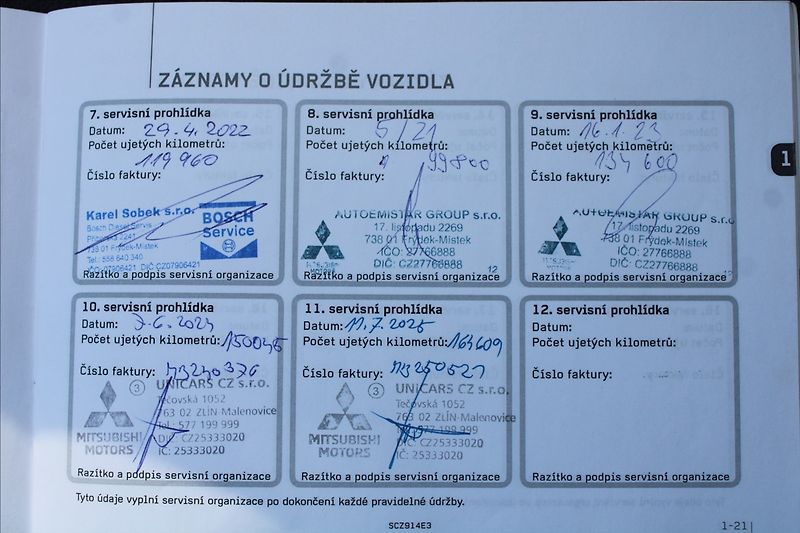 ZÁZNAMY O ÚDRŽBĚ VOZIDLA
7. servisní prohlídka
Datum: 29.4.2022
Počet ujetých kilometrů:
119 960
Číslo faktury:
Karel Sobek s.r.o.
Bosch Diesel Servis
2241
738 01 Frýdek-Místek
Tel.: 558 640 340
IČO: 07906421 DIČ: CZ07906421
BOSCH
Service
Razítko a podpis servisní organizace
8. servisní prohlídka
Datum: 5/21
Počet ujetých kilometrů:
99800
Číslo faktury:
AUTOEMISTAR GROUP s.r.o.
17. listopadu 2269
738 01 Frýdek-Místek
IČO: 27766888
DIČ: CZ27766888
12
MITSUBISHI
MOTORS
Razítko a podpis servisní organizace
9. servisní prohlídka
Datum: 16.1.23
Počet ujetých kilometrů:
134 600
Číslo faktury:
AUTOEMISTAR GROUP s.r.o.
17. listopadu 2269
738 01 Frýdek-Místek
IČO: 27766888
DIČ: CZ27766888
MOTORS
Razítko a podpis servisní organizace
10. servisní prohlídka
Datum: 7.6.2024
Počet ujetých kilometrů: 150045
Číslo faktury:
3
UNICARS CZ s.r.o.
Tečovská 1052
763 02 ZLÍN-Malenovice
Tel.: 577 199 999
DIČ: CZ25333020
IČ: 25333020
MITSUBISHI
MOTORS
Razítko a podpis servisní organizace
11. servisní prohlídka
Datum: 11.7.2025
Počet ujetých kilometrů: 164609
Číslo faktury:
3
UNICARS CZ s.r.o.
Tečovská 1052
763 02 ZLÍN-Malenovice
Tel.: 577 199 999
DIČ: CZ25333020
IČ: 25333020
MITSUBISHI
MOTORS
Razítko a podpis servisní organizace
12. servisní prohlídka
Datum:
Počet ujetých kilometrů:
Číslo faktury:
Razítko a podpis servisní organizace
Tyto údaje vyplní servisní organizace po dokončení každé pravidelné údržby.
SCZ914E3
1-21
1